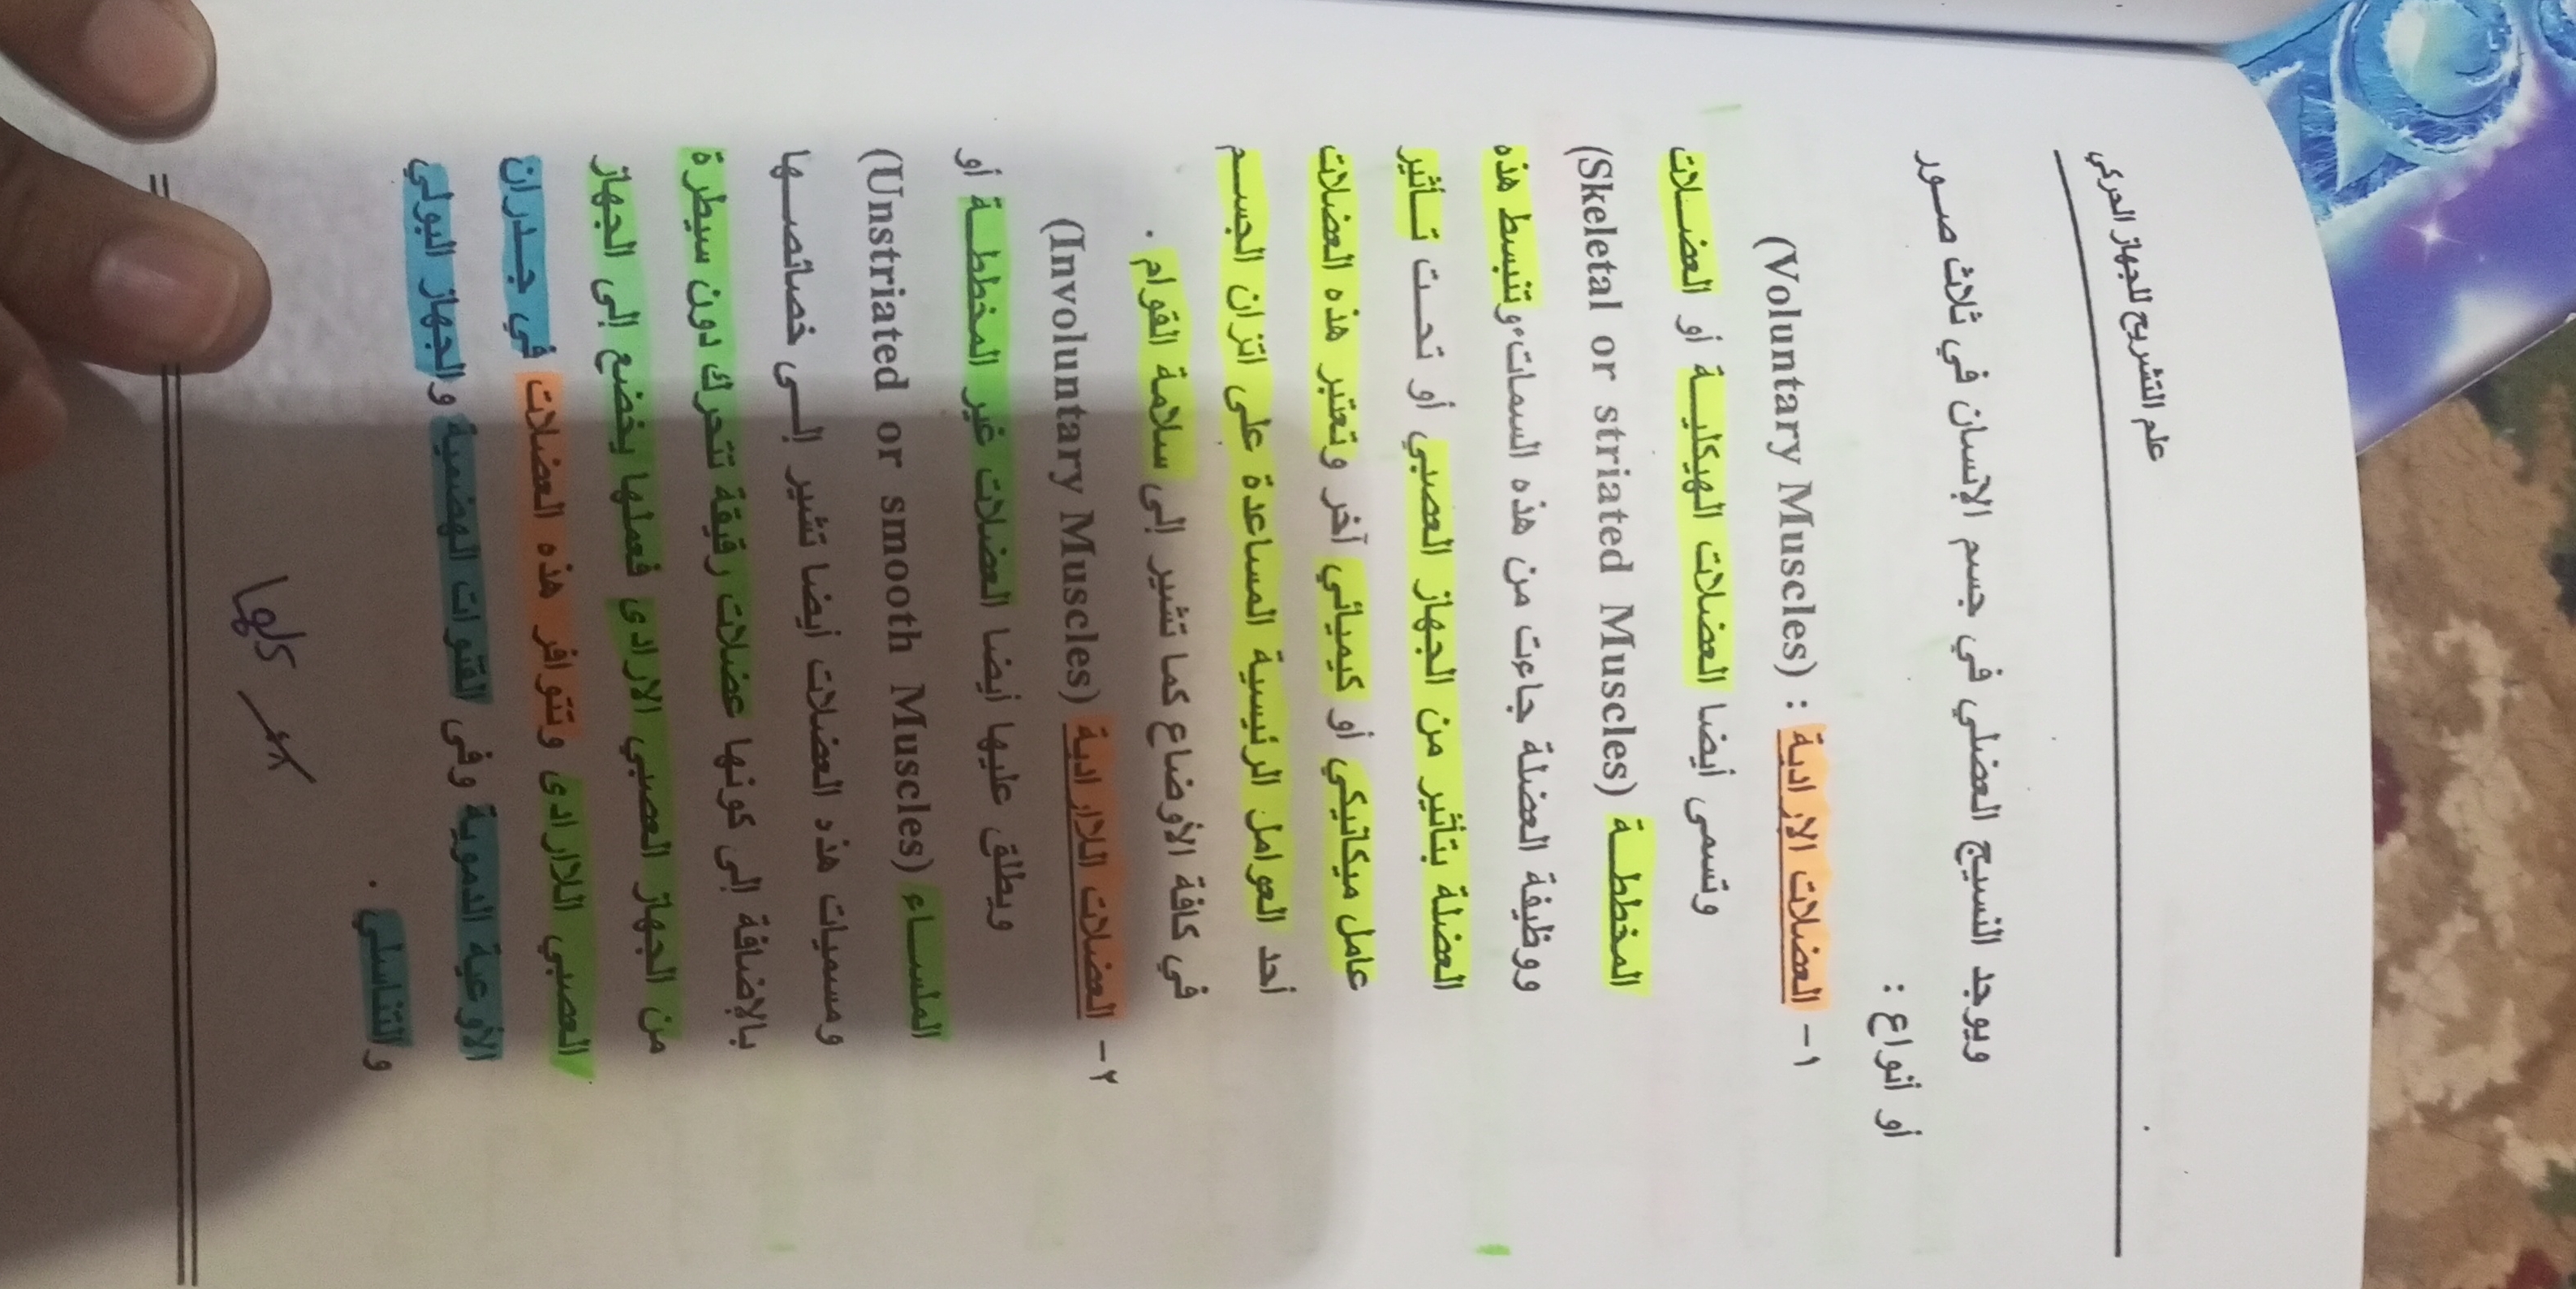 علم التشريح للجهاز الحركي
ويوجد النسيج العضلي في جسم الإنسان في ثلاث صور
أو أنواع :
١- العضلات الارادية : (Voluntary Muscles)
وتسمى أيضا العضلات الهيكلية أو العضلات
المخططة (Skeletal or striated Muscles)
ووظيفة العضلة جاءت من هذه السمات وتنبسط هذه
العضلة بتأثير من الجهاز العصبي أو تحت تأثير
عامل ميكانيكي أو كيميائي آخر وتعتبر هذه العضلات
أحد العوامل الرئيسية المساعدة على اتزان الجسم
في كافة الأوضاع كما تشير إلى سلامة القوام .
٢- العضلات اللارادية (Involuntary Muscles)
ويطلق عليها أيضا العضلات غير المخططة أو
الملساء (Unstriated or smooth Muscles)
ومسميات هذه العضلات أيضا تشير إلى خصائصها
بالإضافة إلى كونها عضلات رقيقة تتحرك دون سيطرة
من الجهاز العصبي الارادى فعملها يخضع إلى الجهاز
العصبي اللارادى وتتوافر هذه العضلات في جدران
الأوعية الدموية وفى القنوات الهضمية والجهاز البولي
والتناسلي .
كلها